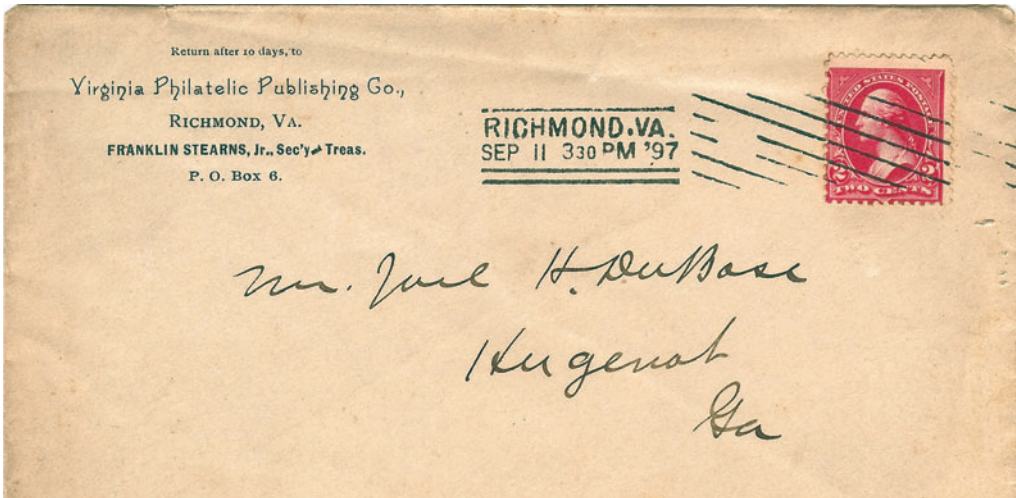 Return after 10 days, to
Virginia Philatelic Publishing Co.,
RICHMOND, VA.
FRANKLIN STEARNS, Jr., Sec'y and Treas.
P. O. Box 6.
RICHMOND, VA.
SEP 11 330 PM '97
UNITED STATES POSTAGE
2 2
TWO CENTS
Mr. Joel H. DuBose
Hugenot
Ga